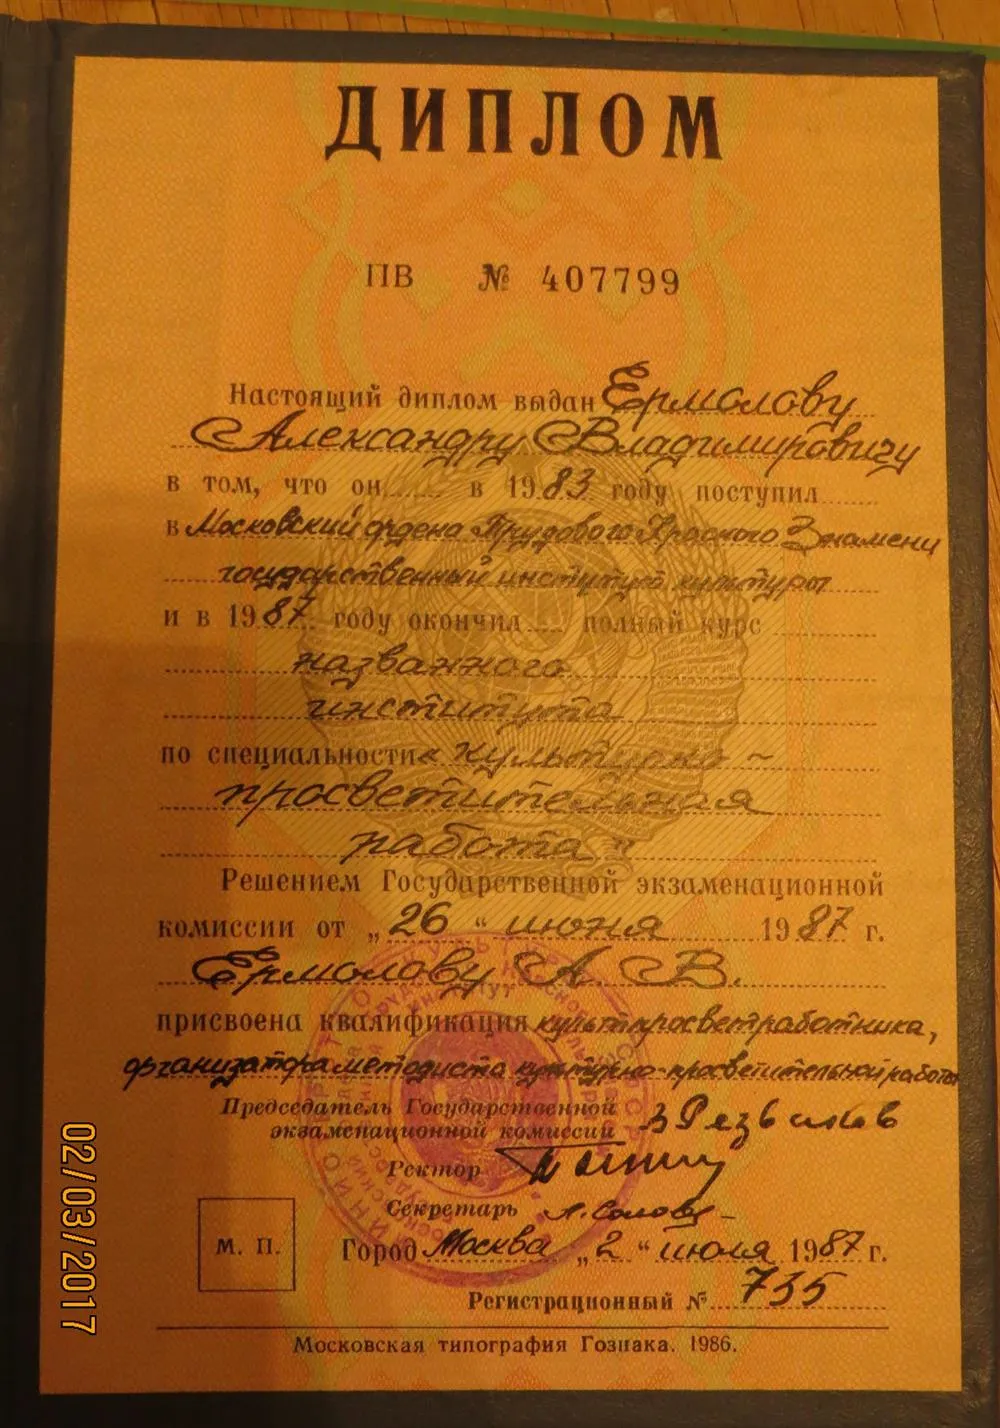 ДИПЛОМ
ПВ № 407799
Настоящий диплом выдан Ермолову
Александру Владимировичу
в том, что он в 1983 году поступил
в Московский ордена Трудового Красного Знамени
государственный институт культуры
и в 1987 году окончил полный курс
названного
института
по специальности «культурно-
просветительная
работа"
Решением Государственной экзаменационной
комиссии от „26" июня 1987 г.
Ермолову А. В.
присвоена квалификация культпросветработника,
организатора методиста культурно-просветительной работы
Председатель Государственной
экзаменационной комиссии
Ректор
Секретарь
М. П.
Город Москва „2" июля 1987 г.
Регистрационный № 735
Московская типография Гознака. 1986.
02/03/2017